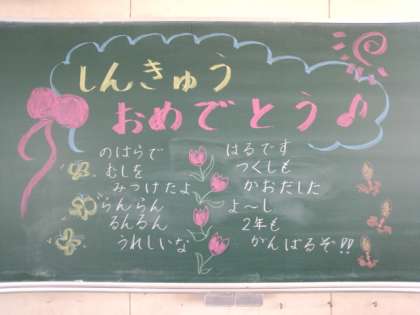 しんきゅう
おめでとう♪
のはらで
むしを
みつけたよ
らんらん
るんるん
うれしいな
はるです
つくしも
かおだした
よ～し
2年も
がんばるぞ!!